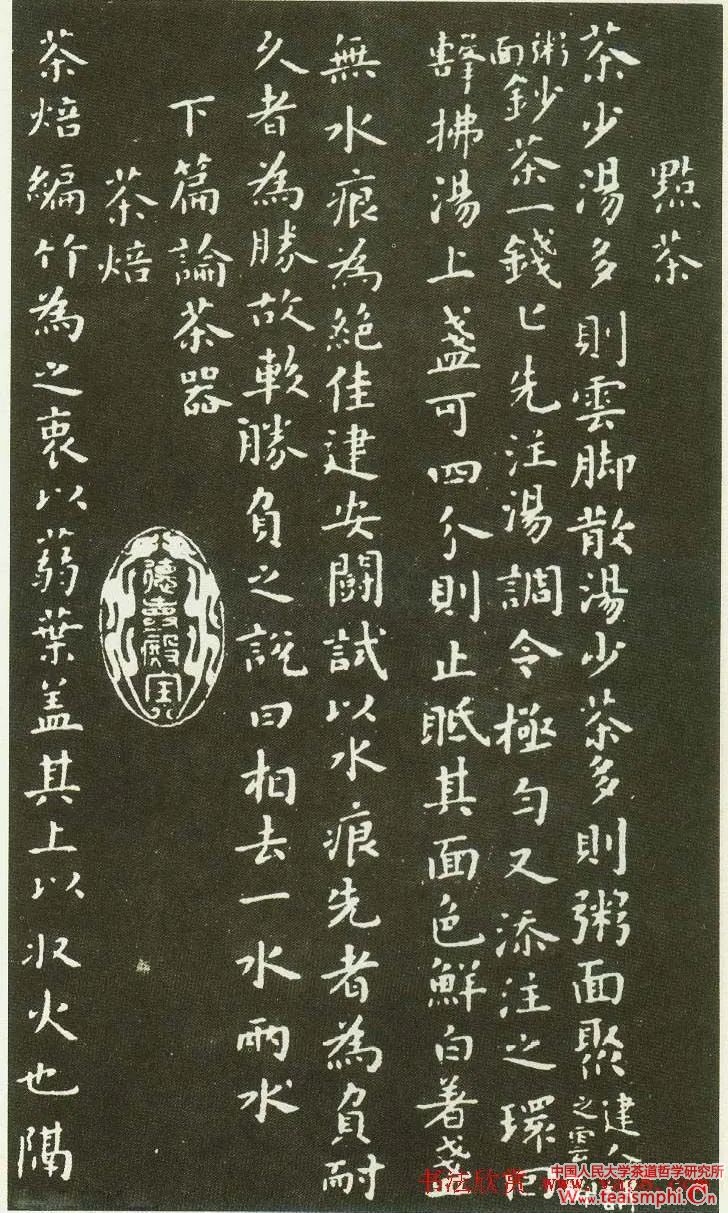 點茶
茶少湯多則雲脚散湯少茶多則粥面聚建人謂之雲
粥面鈔茶一錢匕先注湯調令極勻又添注之環回
擊拂湯上盞可四分則止眡其面色鮮白著盞
無水痕為絕佳建安鬭試以水痕先者為負耐
久者為勝故較勝負之說曰相去一水兩水
下篇論茶器
茶焙
茶焙編竹為之裹以蒻葉蓋其上以收火也隔
德壽殿寶
书法欣赏
中国人民大学茶道哲学研究所
Www.teaismphi.Cn